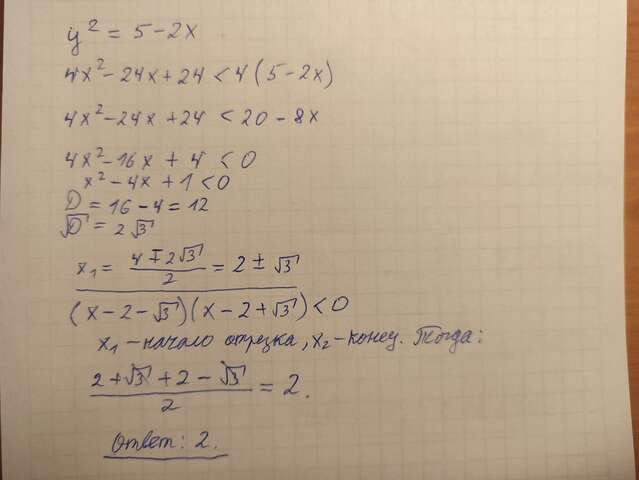 y² = 5 - 2x
4x² - 24x + 24 < 4 (5 - 2x)
4x² - 24x + 24 < 20 - 8x
4x² - 16x + 4 < 0
x² - 4x + 1 < 0
D = 16 - 4 = 12
√D = 2√3
x₁ = (4 ∓ 2√3)/2 = 2 ± √3
(x - 2 - √3)(x - 2 + √3) < 0
x₁ - начало отрезка, x₂ - конец. Тогда:
(2 + √3 + 2 - √3)/2 = 2.
Ответ: 2.